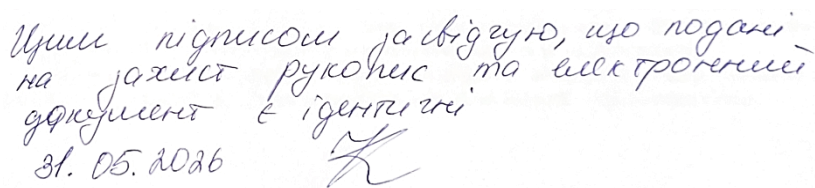 Цим підписом засвідчую, що подані
на захист рукопис та електронний
документ є ідентичні
31.05.2026